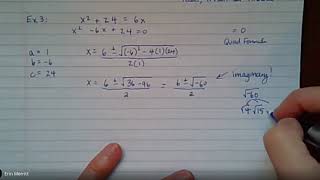 Ex 3: x² + 24 = 6x
x² - 6x + 24 = 0 = 0
Quad Formula
a = 1
b = -6
c = 24
x = 6 ± √(-6)² - 4(1)(24)
2(1)
x = 6 ± √36 - 96 = 6 ± √-60 ← imaginary!
2 2
√-60
√4 √15
Erin Merritt